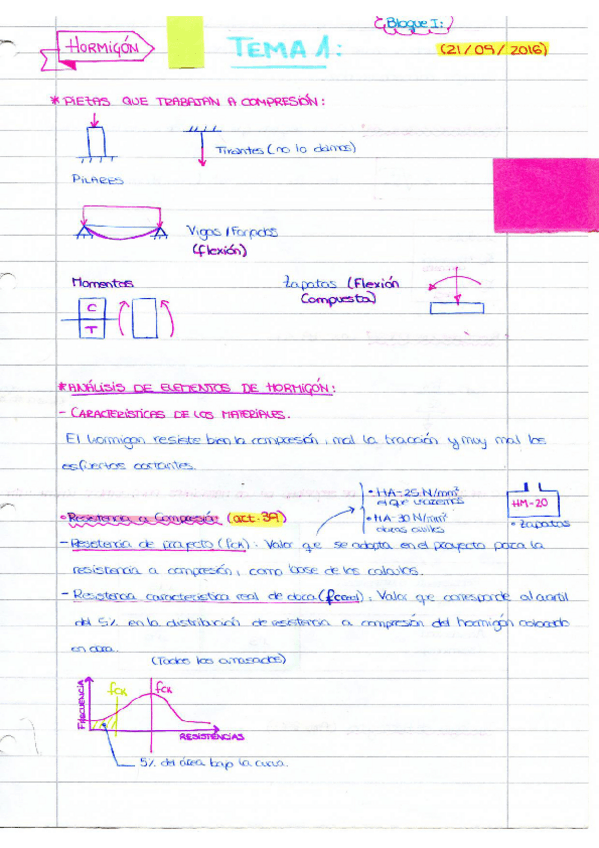 Bloque I:
HORMIGÓN
TEMA 1:
(21/09/2016)
* PIEZAS QUE TRABAJAN A COMPRESIÓN:
Tirantes (no lo damos)
PILARES
Vigas / Forjados
(flexión)
Momentos
Zapatas (Flexión
Compuesta)
C
T
* ANÁLISIS DE ELEMENTOS DE HORMIGÓN:
- CARACTERÍSTICAS DE LOS MATERIALES.
El hormigón resiste bien la compresión, mal la tracción y muy mal los
esfuerzos cortantes.
• HA-25 N/mm²
el que usaremos
• HA-30 N/mm²
obras civiles
HM-20
• Zapatas
• Resistencia a Compresión (art. 39)
- Resistencia de proyecto (fck): Valor que se adopta en el proyecto para la
resistencia a compresión, como base de los calculos.
- Resistencia caracteristica real de obra (fcreal): Valor que corresponde al cuartil
del 5% en la distribución de resistencia a compresión del hormigón colocado
en obra.
(Todas las amasadas)
FRECUENCIA
fck
fck
RESISTENCIAS
5% del área bajo la curva.